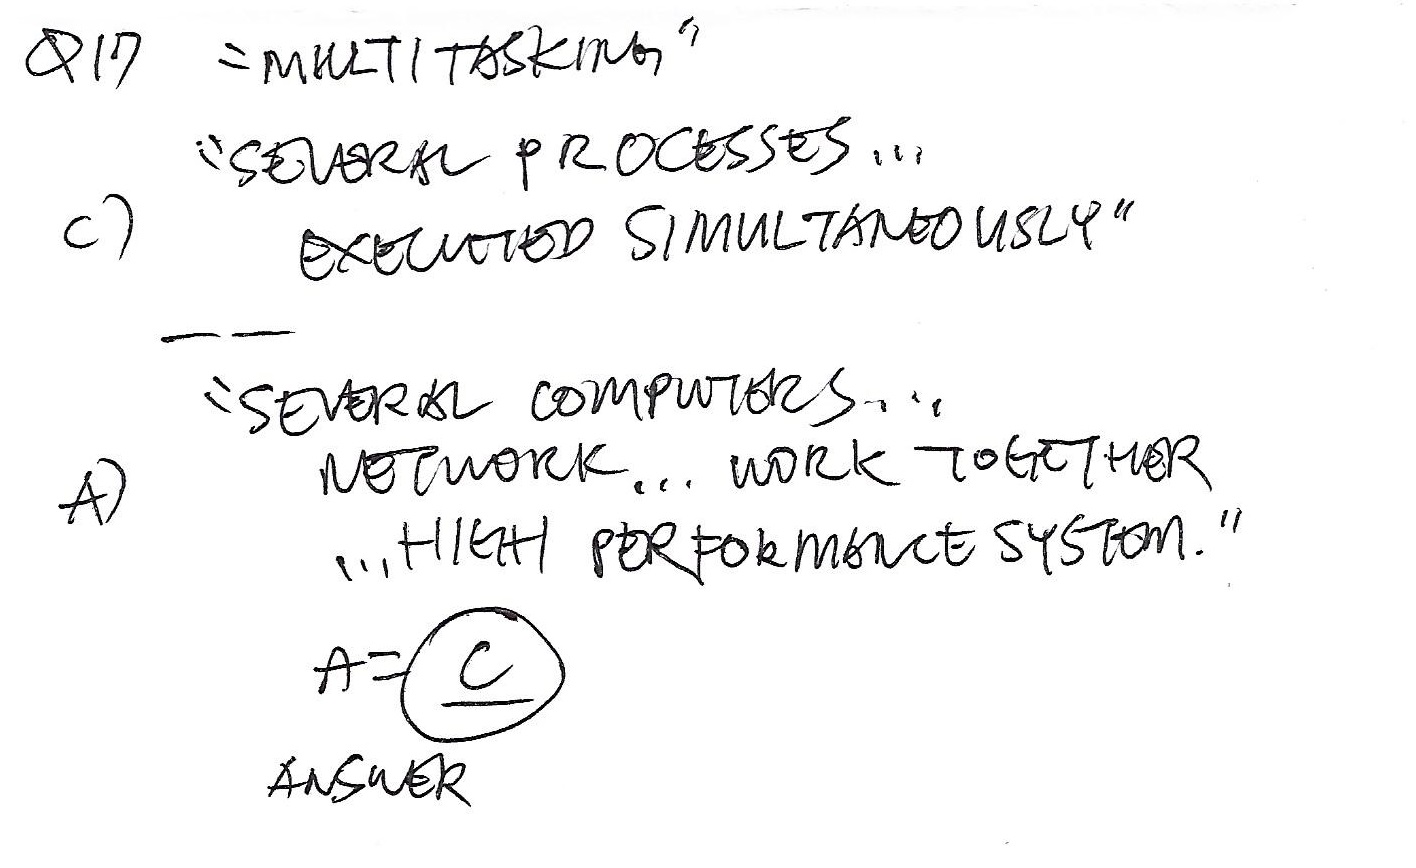 Q17 "MULTITASKING"
"SEVERAL PROCESSES...
C) EXECUTED SIMULTANEOUSLY"
"SEVERAL COMPUTERS...
NETWORK... WORK TOGETHER
A) ...HIGH PERFORMANCE SYSTEM."
A= C
ANSWER